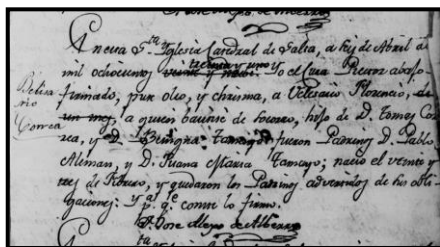 En esta Sta Iglesia Catedral de Salta, a seis de Abril de
mil ochocientos treinta y uno Yo el Cura Rector abajo
firmado, puse oleo, y chrisma, a Velisario Florencio, de
un mes, a quien bautisé de socorro, hijo de D. Tomas Cor
rea, y D. Benigna Tamayo fueron Padrinos D. Pablo
Aleman, y D. Juana Maria Tamayo; nació el veinte y
tres de Febrero, y quedaron los Padrinos advertidos de sus obli
gaciones: y pa. qe. conste lo firmo.
D. Jose
Belisa
rio
Correa